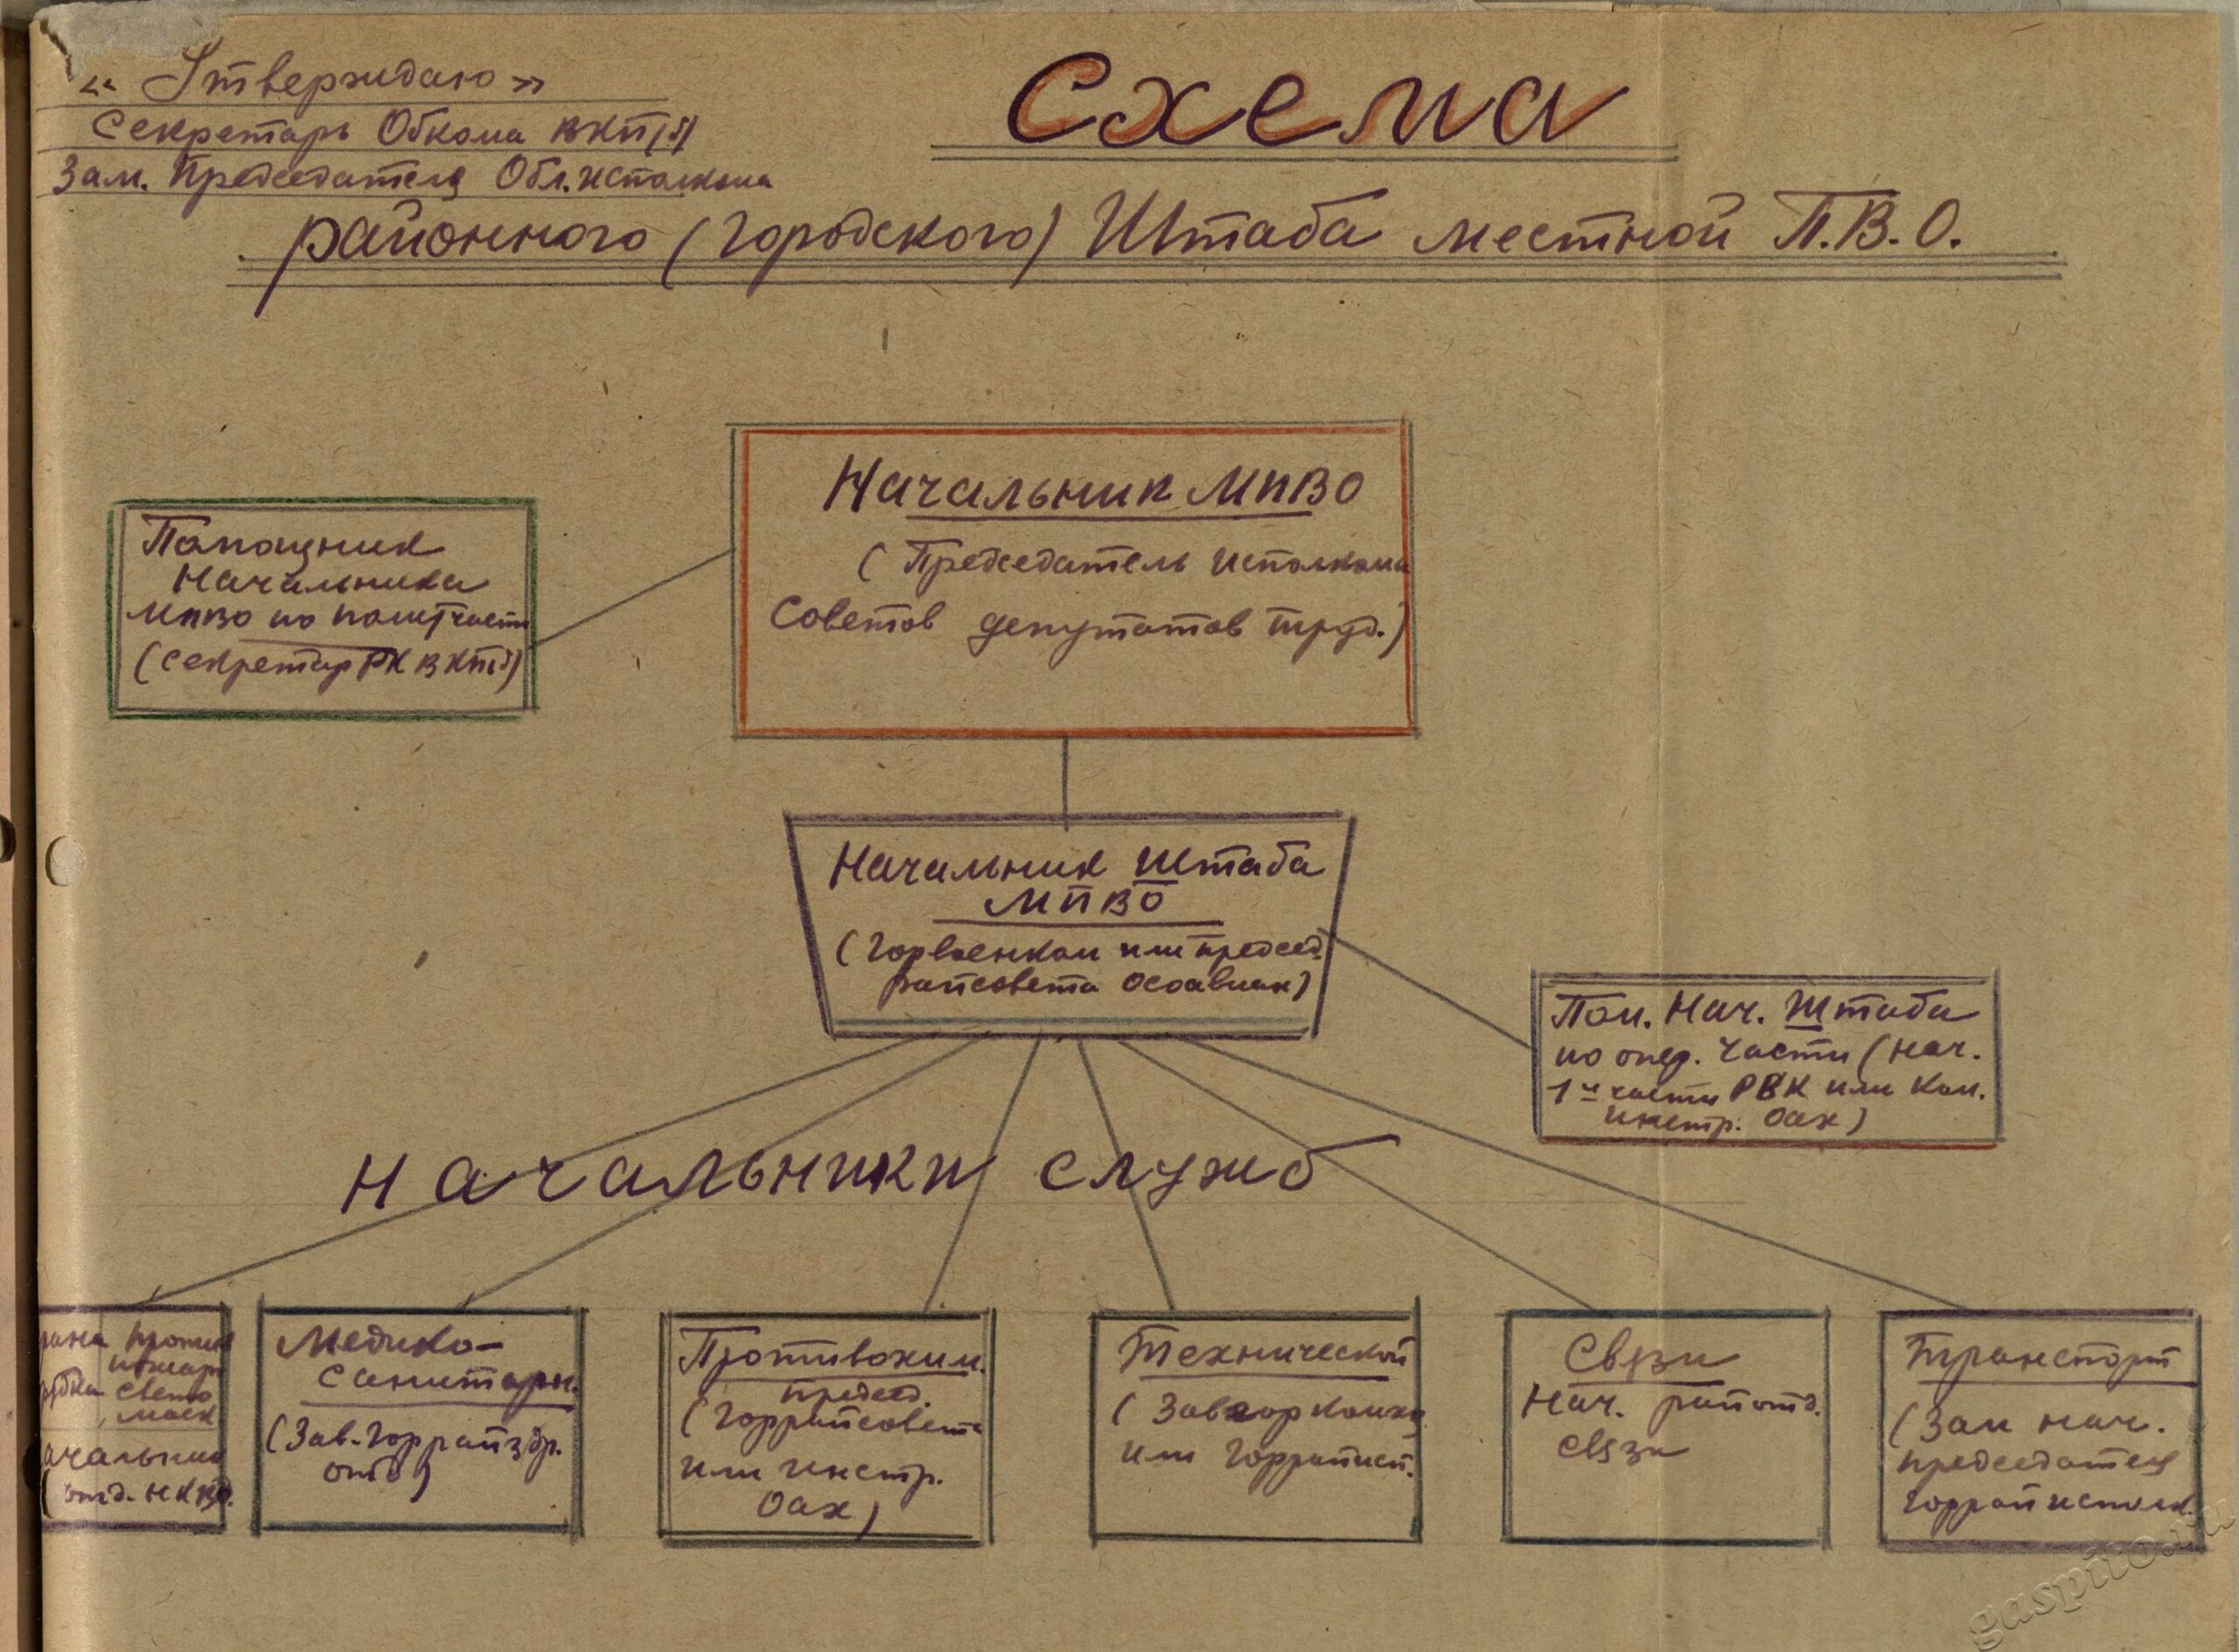 « Утверждаю »
Секретарь Обкома ВКП(б)
Зам. Председателя Обл.исполкома
Схема
районного (городского) Штаба местной П.В.О.
Начальник МПВО
( Председатель исполкома
Советов депутатов труд.)
Помощник
Начальника
МПВО по полит части
(секретар РК ВКПб)
Начальник Штаба
МПВО
(Горвоенком или председ.
райсовета осоавиах)
Пом. Нач. Штаба
по опер. части (нач.
1й части РВК или Ком.
инстр. Оах)
Начальники служб
рана
пожар
свето
маск
ачальник
( отд. НКВД.
Медико-
санитарн.
(Зав. Горрайздр.
отд)
Противохим.
председ.
(Горрайсовета
или инстр.
Оах)
Технической
( Завгоркомхо
или Горрайисп.
Связи
Нач. райотд.
связи
Транспорт
(Зам нач.
председателя
горрайисполк.
gaspito.ru